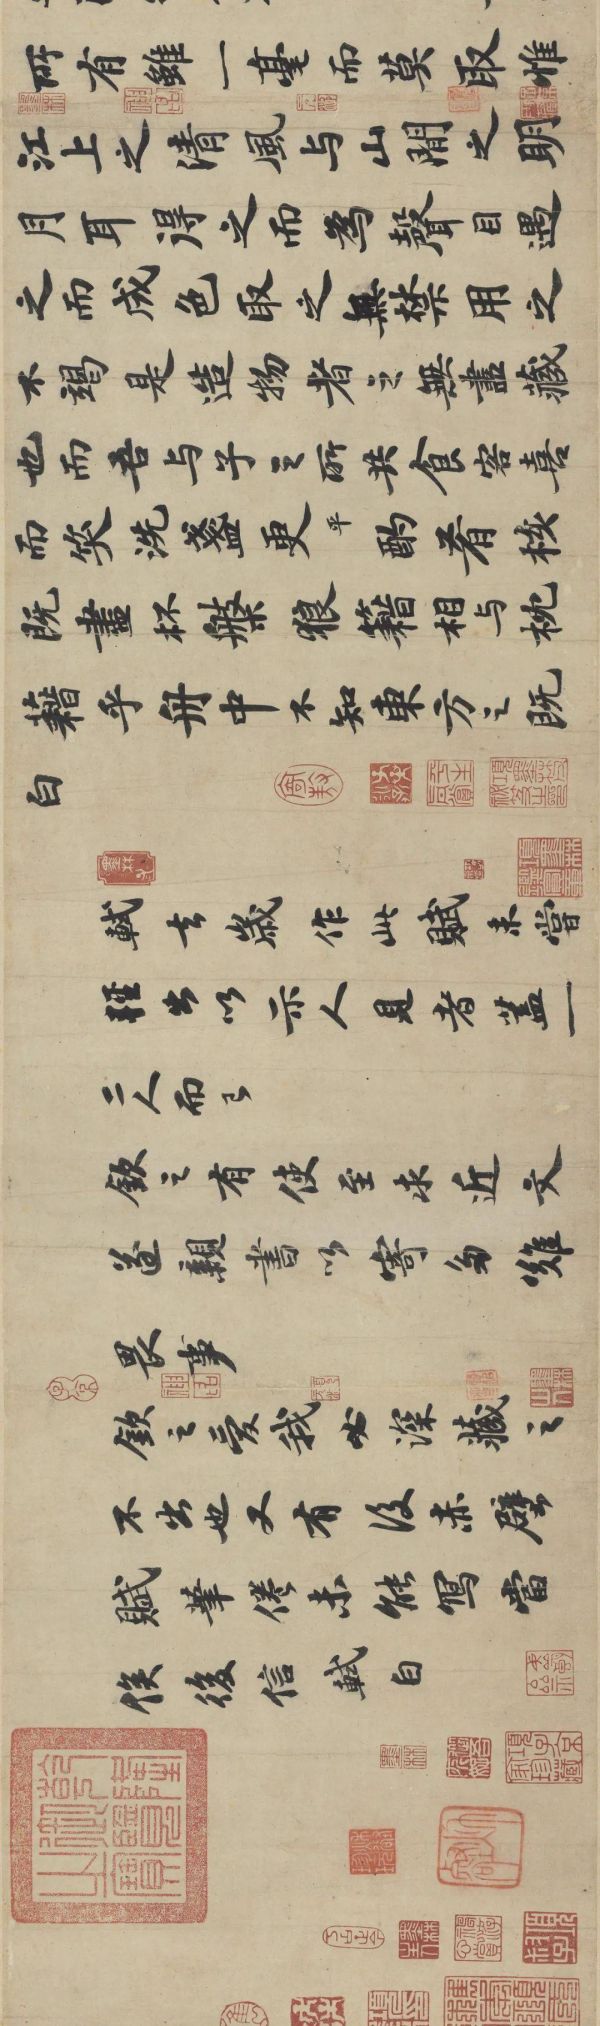 所有雖一毫而莫取惟
江上之清風与山間之明
月耳得之而為聲目遇
之而成色取之無禁用之
不竭是造物者之無盡藏
也而吾与子之所共食客喜
而笑洗盞更平酌肴核
既盡杯槃狼籍相与枕
藉乎舟中不知東方之既
白
軾去歲作此賦未嘗
輕出以示人見者蓋一
二人而已
欽之有使至求近文
遂親書以寄多難
畏事
欽之愛我必深藏之
不出也又有後赤壁
賦筆倦未能寫當
俟後信軾白